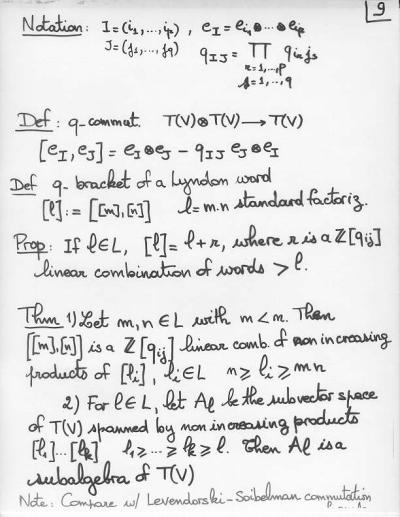 9
Notation: I=(i₁,...,iₚ), e_I = e_{i₁}⊗...⊗e_{iₚ}
J=(j₁,...,j_q) q_{IJ} = ∏ q_{i_r j_s}
r=1,...,p
s=1,...,q
Def: q-commut. T(V)⊗T(V)→T(V)
[e_I,e_J] = e_I⊗e_J − q_{IJ} e_J⊗e_I
Def q-bracket of a Lyndon word
[l] := [[m],[n]] l=m.n standard factoriz.
Prop: If l∈L, [l] = l + r, where r is a ℤ[q_{ij}]
linear combination of words > l.
Thm 1) Let m, n ∈ L with m < n. Then
[[m],[n]] is a ℤ[q_{ij}] linear comb. of non increasing
products of [l_i], l_i∈L n ≥ l_i ≥ mn
2) For l∈L, let A_l be the subvector space
of T(V) spanned by non increasing products
[l₁]...[l_k] l₁≥...≥l_k≥l. Then A_l is a
subalgebra of T(V)
Note: Compare w/ Levendorski-Soibelman commutation